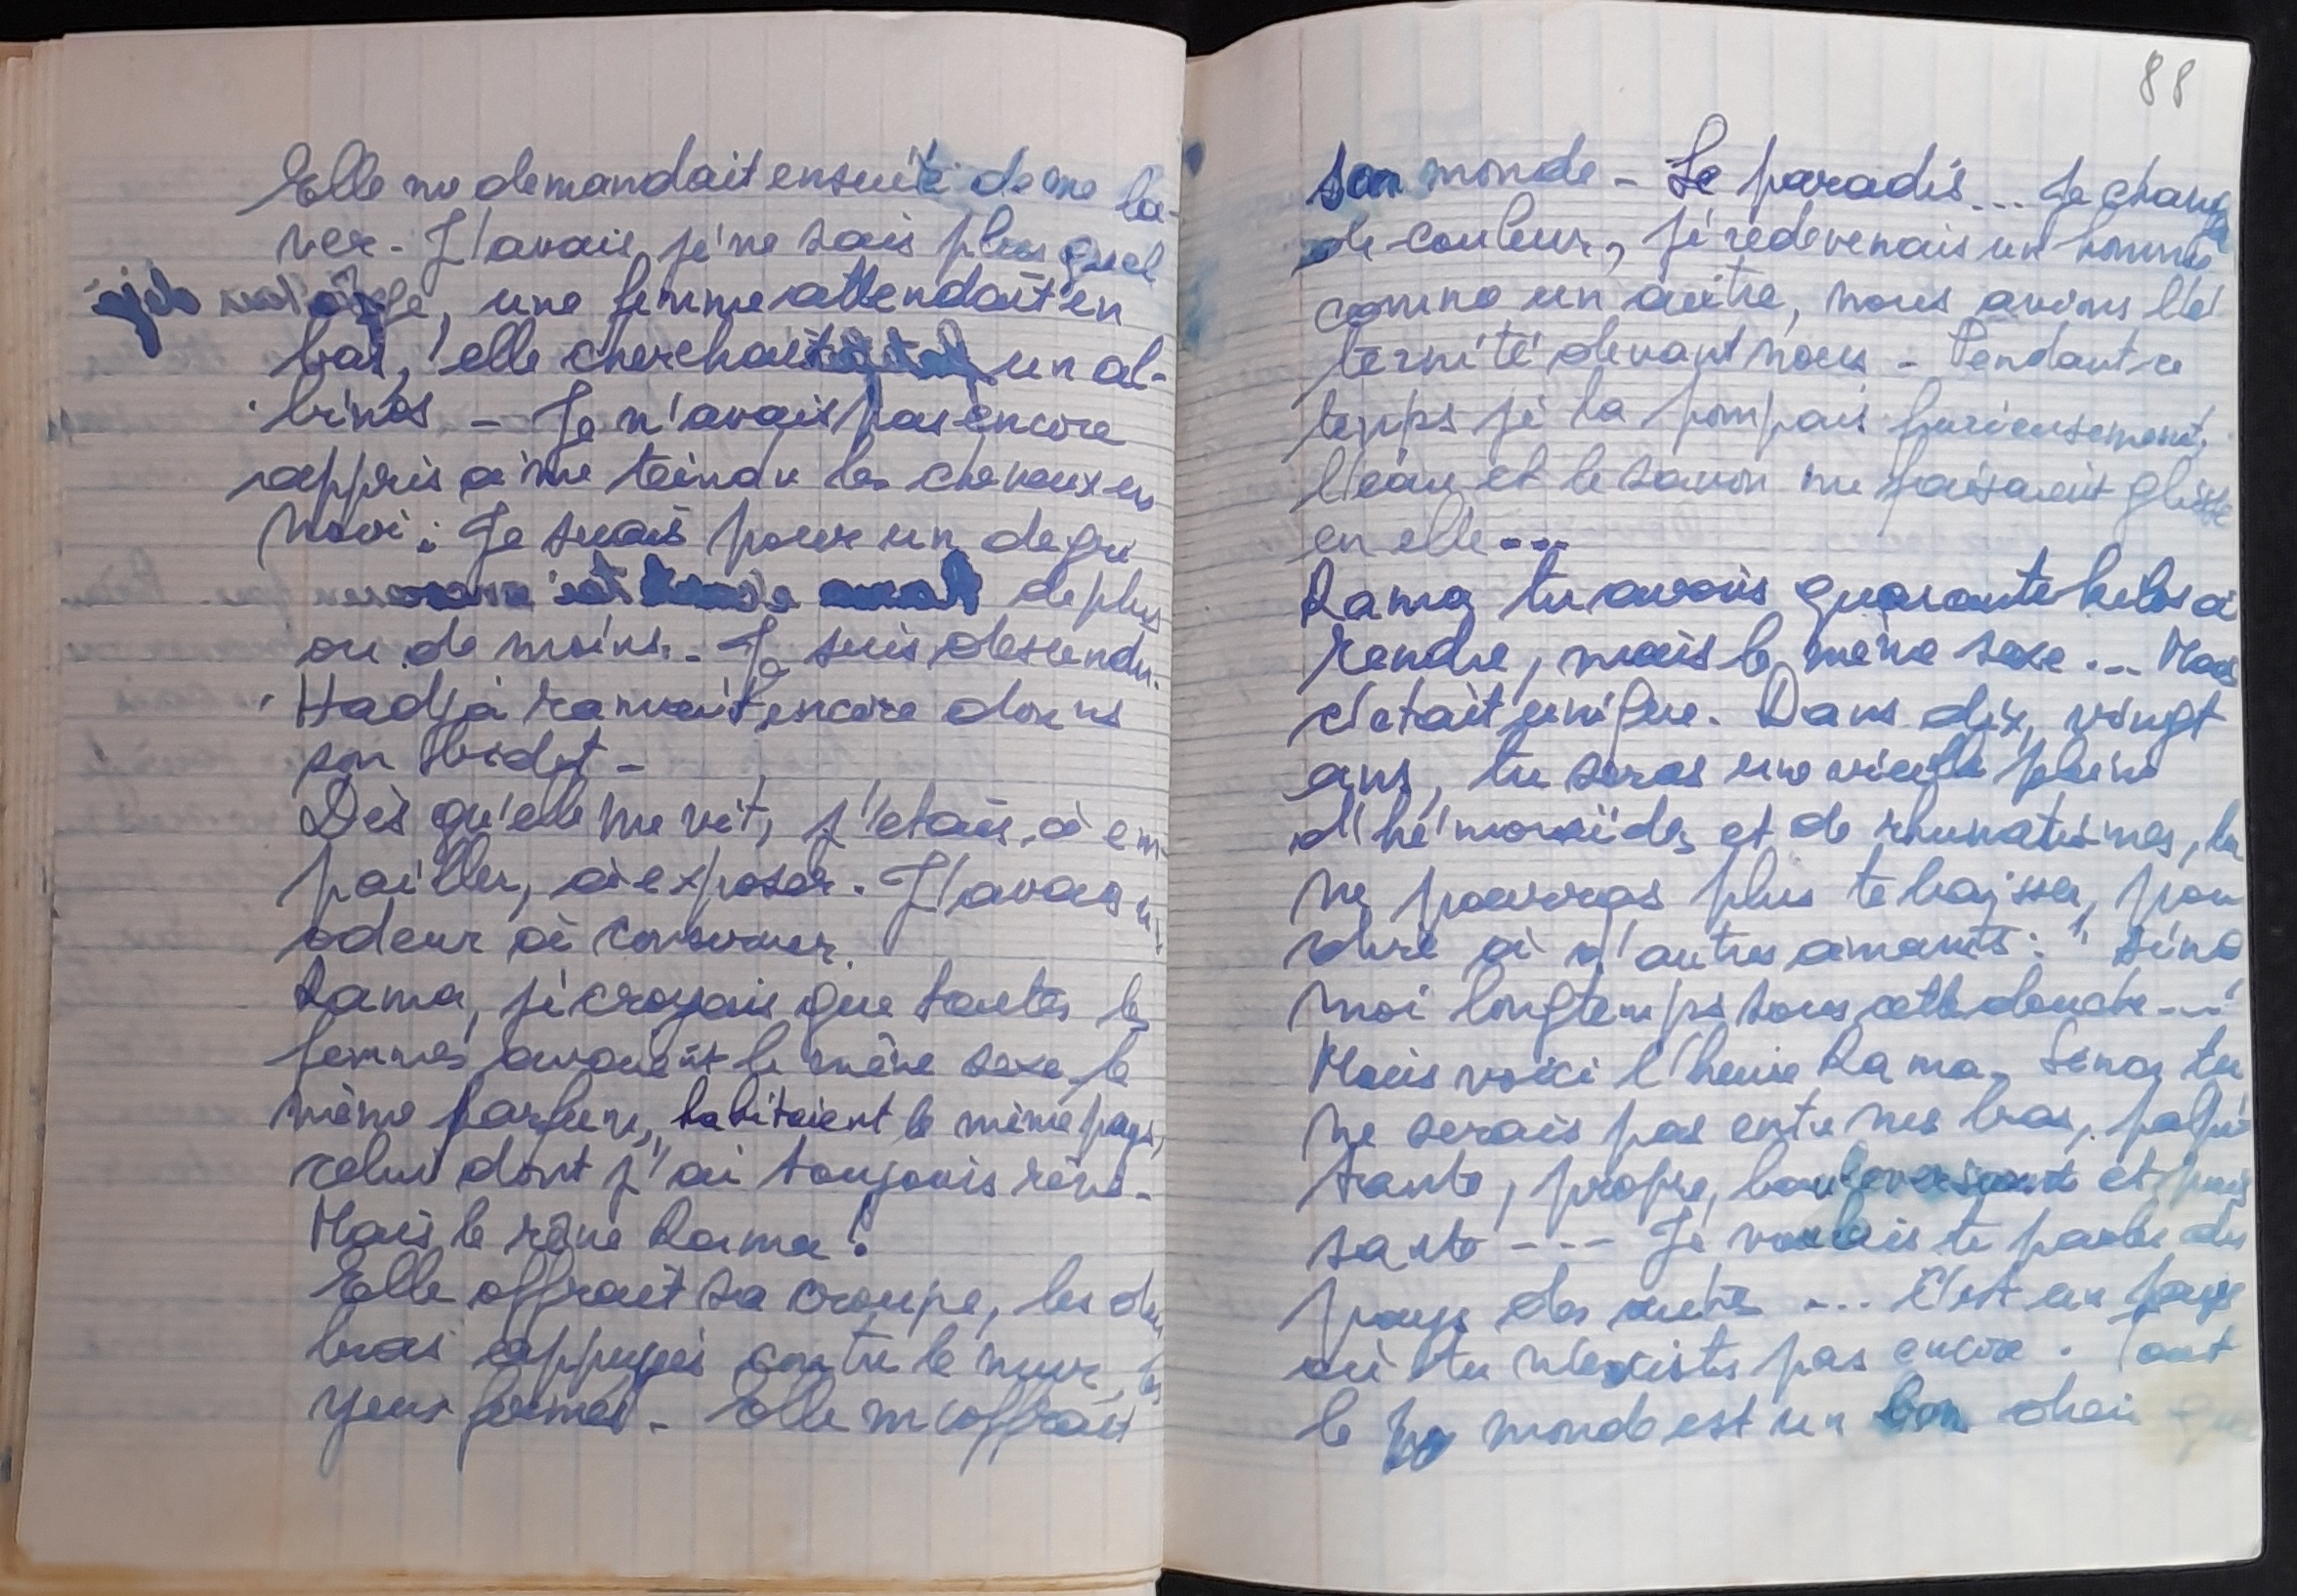 Elle me demandait ensuite de me la-
ver - J'avais, je ne sais plus quel
âge, une femme attendait en
bas, elle cherchait un al-
binos - Je n'avais pas encore
appris à me teindre les cheveux en
noir: Je suais pour un degré
de plus
ou de moins.. Je suis descendu.
Hadja ramait encore dans
son bidet -
Dès qu'elle me vit, j'étais à em-
pailler, à exposer. J'avais un
odeur à conserver.
Rama, je croyais que toutes les
femmes avaient le même sexe, le
même parfum, habitaient le même pays,
celui dont j'ai toujours rêvé -
Mais le rêve Rama!
Elle offrait sa croupe, les deu
bras appuyés contre le mur, les
yeux fermés - Elle m'offrait
88
son monde - Le paradis... Je change
de couleur, je redevenais un homme
comme un autre, nous avions l'é
ternité devant nous - Pendant ce
temps je la pompais furieusement,
l'eau et le savon me faisaient glisse
en elle...
Rama tu avais quarante kilos à
rendre, mais le même sexe... Mais
c'était unique. Dans dix, vingt
ans, tu seras une vieille pleine
d'hémoroïdes et de rhumatismes, tu
ne pourras plus te baisser, pou
dire à d'autres amants: "
moi longtemps sous cette douche...
Mais voici l'heure Rama. Sinon tu
ne serais pas entre mes bras, palpi
tante, propre, bouleversant et puis
sante --- Je voulais te parler du
pays des autres ... C'est un pays
où tu n'existes pas encore. Tout
le monde est un bon